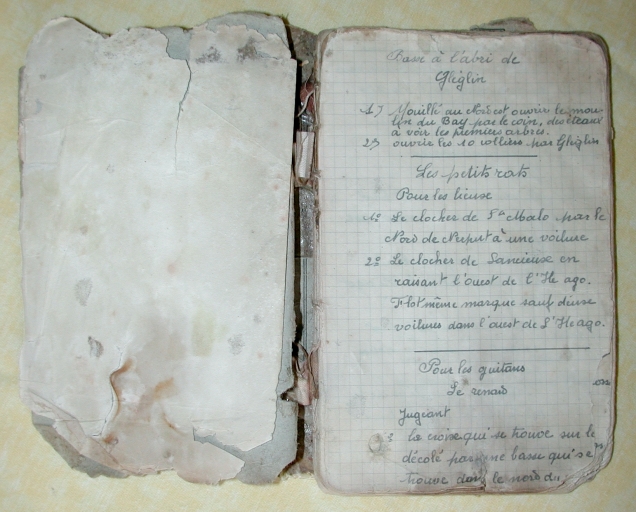 Basse à l'abri de
Ghiglin
1) Mouillé au Nord est ouvrir le mou
lin du Bay par le coin, des
à voir les premiers arbres.
2) ouvrir les 10 rolliers par Ghiglin
Les petits rats
Pour les lieuse
1º Le clocher de St Malo par le
Nord de à une voilure
2º Le clocher de Lancieux en
raisant l'ouest de l'He ago.
Flot même marque sauf deuse
voilures dans l'ouest de L'He ago.
Pour les guitans
Le renard
on
Jugeant
la croix qui se trouve sur le
décolé par une basse qui se
trouve dans le nord du